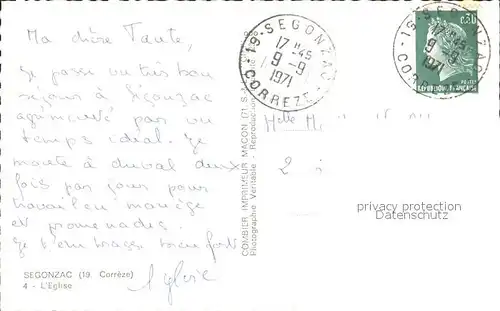 Ma chère Tante,
je passe un très bon
séjour à Segonzac
agrémenté par un
temps idéal. Je
monte à cheval deux
fois par jour pour
travail en manège
et promenades.
Je t'embrasse bien fort
SEGONZAC (19. Corrèze)
4 - L'Eglise
COMBIER IMPRIMEUR MACON (71. S.
Photographie Véritable - Reproduction
19 - SEGONZAC
17 H 45
9 - 9
1971
CORREZE
19 - SEGONZAC
17 H 45
9 - 9
1971
0,30
POSTES
REPUBLIQUE FRANÇAISE
Melle
2
privacy protection
Datenschutz